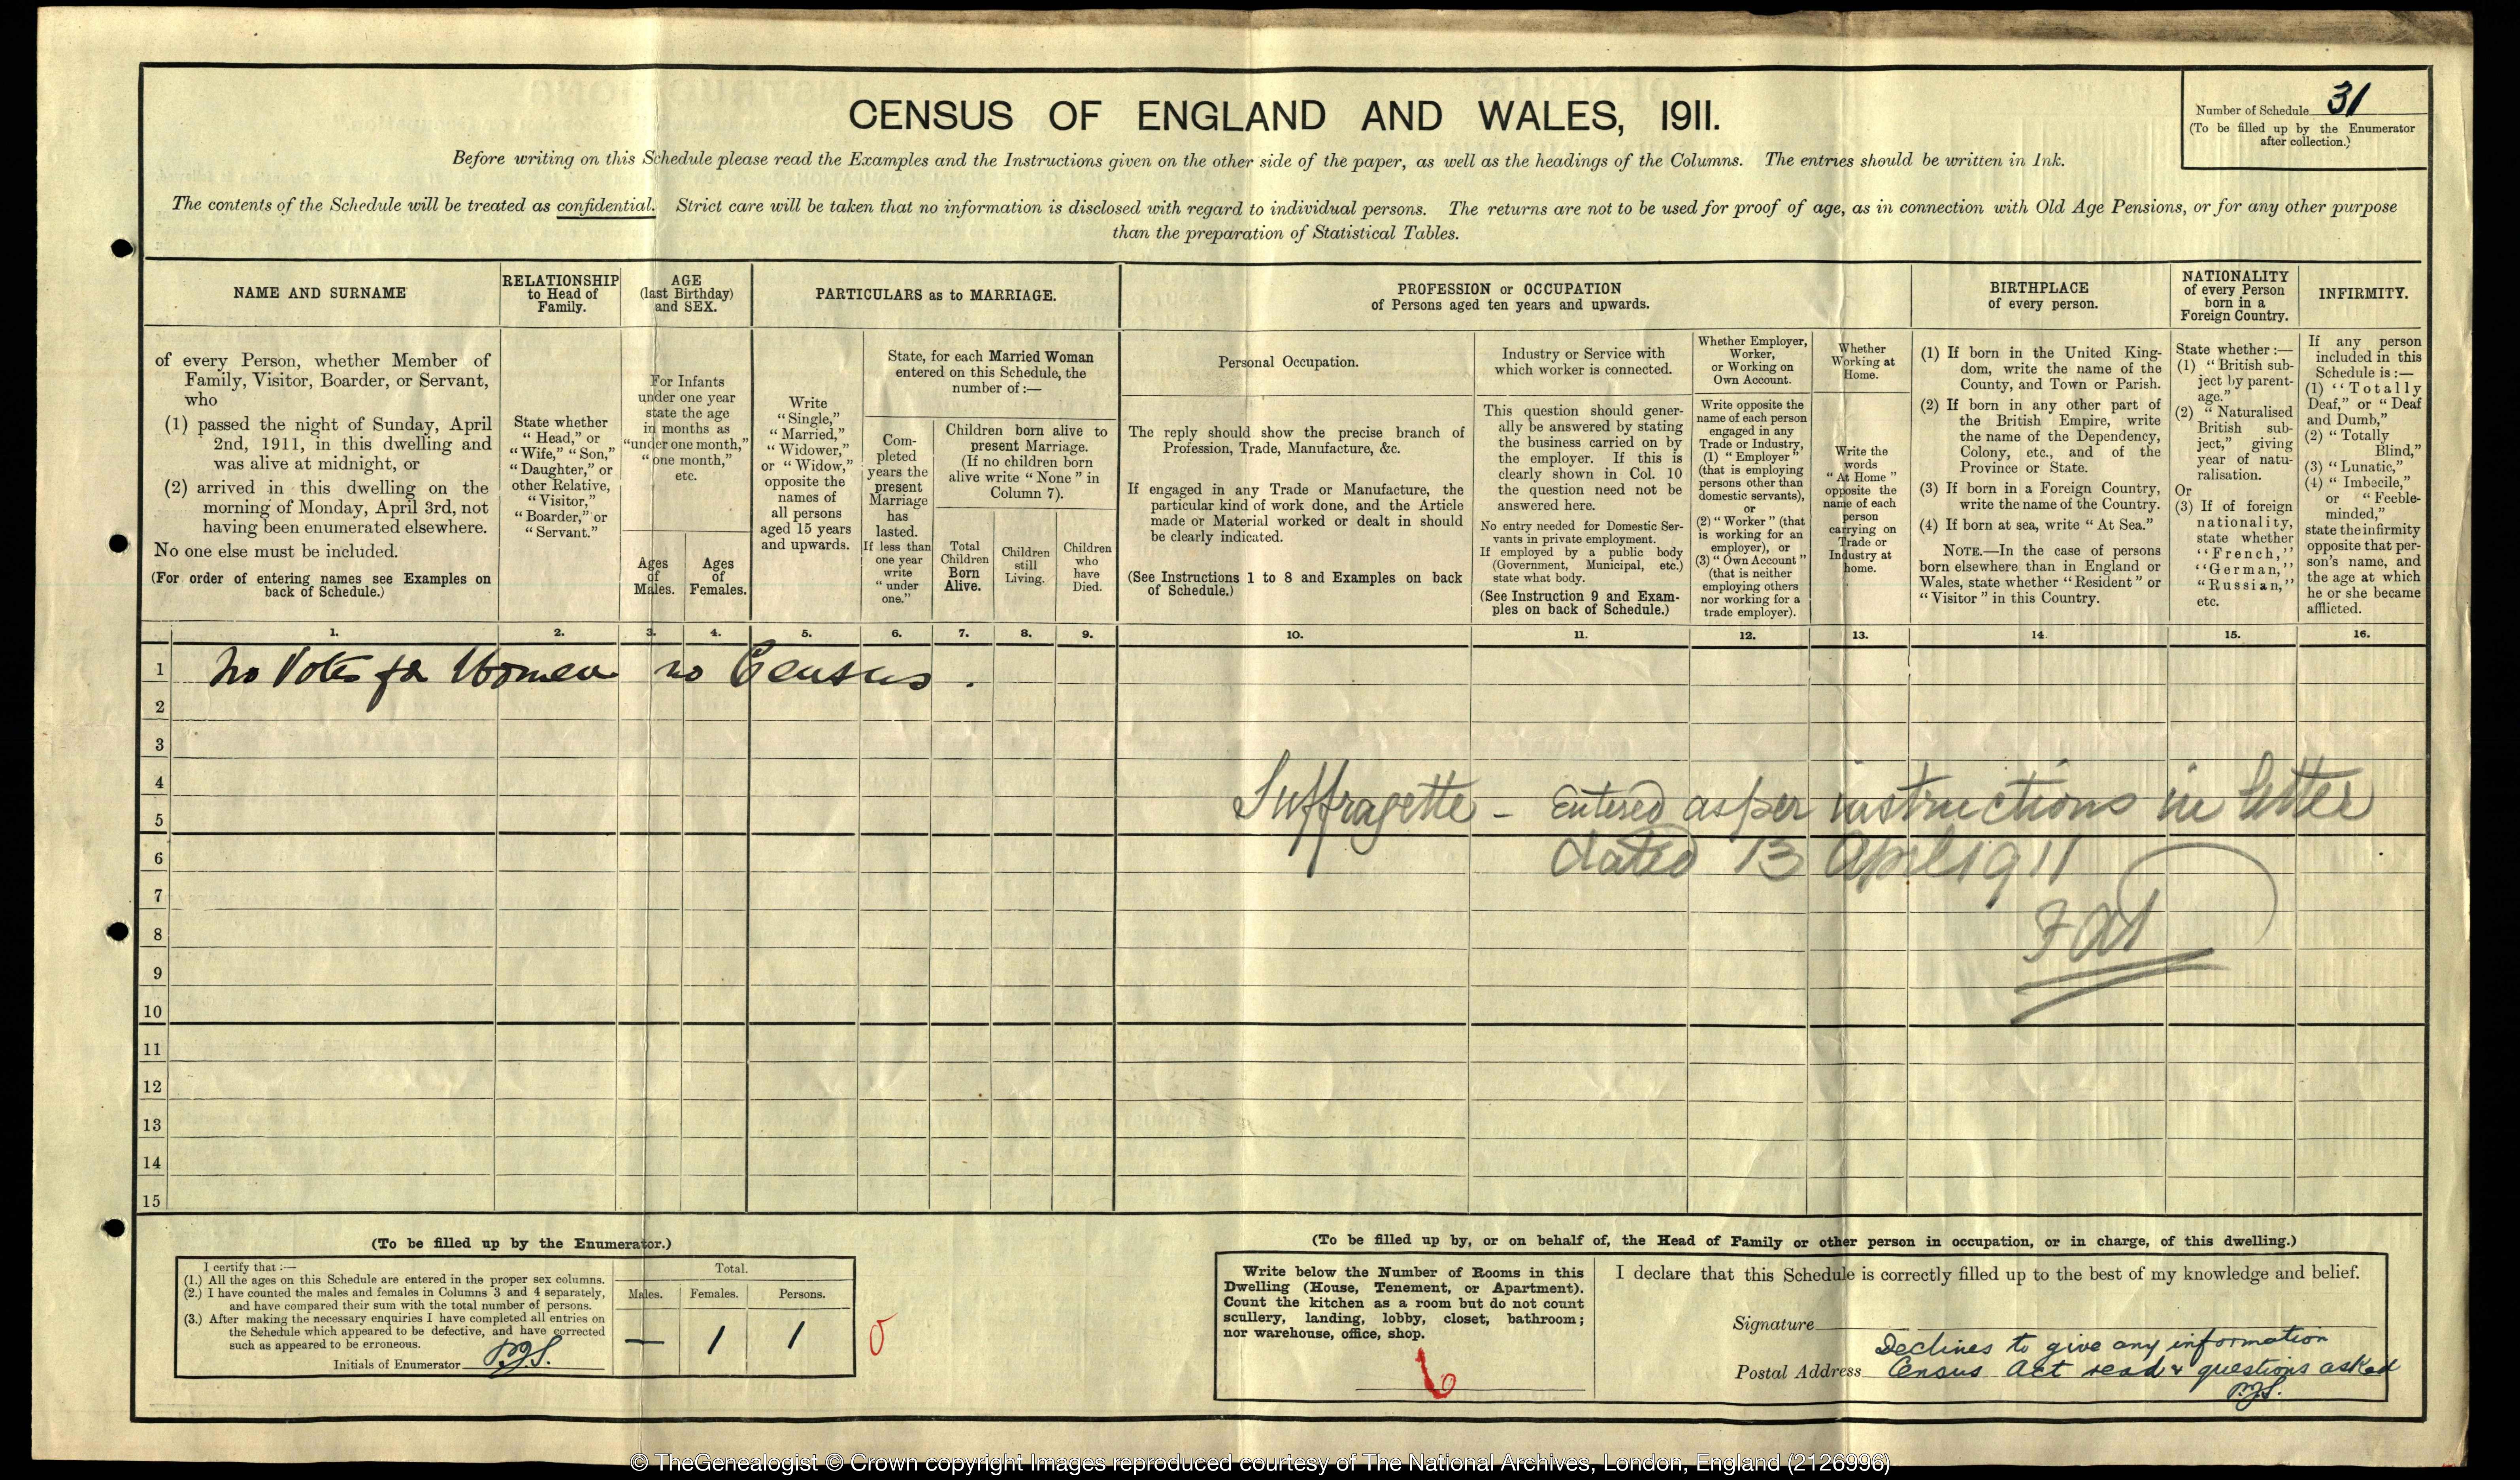 CENSUS OF ENGLAND AND WALES, 1911.
Number of Schedule 31
(To be filled up by the Enumerator
after collection.)
Before writing on this Schedule please read the Examples and the Instructions given on the other side of the paper, as well as the headings of the Columns. The entries should be written in Ink.
The contents of the Schedule will be treated as confidential. Strict care will be taken that no information is disclosed with regard to individual persons. The returns are not to be used for proof of age, as in connection with Old Age Pensions, or for any other purpose
than the preparation of Statistical Tables.
NAME AND SURNAME
of every Person, whether Member of
Family, Visitor, Boarder, or Servant,
who
(1) passed the night of Sunday, April
2nd, 1911, in this dwelling and
was alive at midnight, or
(2) arrived in this dwelling on the
morning of Monday, April 3rd, not
having been enumerated elsewhere.
No one else must be included.
(For order of entering names see Examples on
back of Schedule.)
1.
RELATIONSHIP
to Head of
Family.
State whether
"Head," or
"Wife," "Son,"
"Daughter," or
other Relative,
"Visitor,"
"Boarder," or
"Servant."
2.
AGE
(last Birthday)
and SEX.
For Infants
under one year
state the age
in months as
"under one month,"
"one month,"
etc.
Ages
of
Males.
3.
Ages
of
Females.
4.
PARTICULARS as to MARRIAGE.
Write
"Single,"
"Married,"
"Widower,"
or "Widow,"
opposite the
names of
all persons
aged 15 years
and upwards.
5.
State, for each Married Woman
entered on this Schedule, the
number of :—
Com-
pleted
years the
present
Marriage
has
lasted.
If less than
one year
write
"under
one."
6.
Children born alive to
present Marriage.
(If no children born
alive write "None" in
Column 7).
Total
Children
Born
Alive.
7.
Children
still
Living.
8.
Children
who
have
Died.
9.
PROFESSION or OCCUPATION
of Persons aged ten years and upwards.
Personal Occupation.
The reply should show the precise branch of
Profession, Trade, Manufacture, &c.
If engaged in any Trade or Manufacture, the
particular kind of work done, and the Article
made or Material worked or dealt in should
be clearly indicated.
(See Instructions 1 to 8 and Examples on back
of Schedule.)
10.
Industry or Service with
which worker is connected.
This question should gener-
ally be answered by stating
the business carried on by
the employer. If this is
clearly shown in Col. 10
the question need not be
answered here.
No entry needed for Domestic Ser-
vants in private employment.
If employed by a public body
(Government, Municipal, etc.)
state what body.
(See Instruction 9 and Exam-
ples on back of Schedule.)
11.
Whether Employer,
Worker,
or Working on
Own Account.
Write opposite the
name of each person
engaged in any
Trade or Industry,
(1) "Employer"
(that is employing
persons other than
domestic servants),
or
(2) "Worker" (that
is working for an
employer), or
(3) "Own Account"
(that is neither
employing others
nor working for a
trade employer).
12.
Whether
Working at
Home.
Write the
words
"At Home"
opposite the
name of each
person
carrying on
Trade or
Industry at
home.
13.
BIRTHPLACE
of every person.
(1) If born in the United King-
dom, write the name of the
County, and Town or Parish.
(2) If born in any other part of
the British Empire, write
the name of the Dependency,
Colony, etc., and of the
Province or State.
(3) If born in a Foreign Country,
write the name of the Country.
(4) If born at sea, write "At Sea."
NOTE.—In the case of persons
born elsewhere than in England or
Wales, state whether "Resident" or
"Visitor" in this Country.
14.
NATIONALITY
of every Person
born in a
Foreign Country.
State whether :—
(1) "British sub-
ject by parent-
age."
(2) "Naturalised
British sub-
ject," giving
year of natu-
ralisation.
Or
(3) If of foreign
nationality,
state whether
"French,"
"German,"
"Russian,"
etc.
15.
INFIRMITY.
If any person
included in this
Schedule is :—
(1) "Totally
Deaf," or "Deaf
and Dumb,"
(2) "Totally
Blind,"
(3) "Lunatic,"
(4) "Imbecile,"
or "Feeble-
minded,"
state the infirmity
opposite that per-
son's name, and
the age at which
he or she became
afflicted.
16.
1 No Votes for Women no Census.
2
3
4
Suffragette - Entered as per instructions in letter
5
dated 13 April 1911
6
7
8
9
10
11
12
13
14
15
(To be filled up by the Enumerator.)
I certify that :—
(1.) All the ages on this Schedule are entered in the proper sex columns.
(2.) I have counted the males and females in Columns 3 and 4 separately,
and have compared their sum with the total number of persons.
(3.) After making the necessary enquiries I have completed all entries on
the Schedule which appeared to be defective, and have corrected
such as appeared to be erroneous.
Initials of Enumerator
Total.
Males. Females. Persons.
— 1 1
0
(To be filled up by, or on behalf of, the Head of Family or other person in occupation, or in charge, of this dwelling.)
Write below the Number of Rooms in this
Dwelling (House, Tenement, or Apartment).
Count the kitchen as a room but do not count
scullery, landing, lobby, closet, bathroom;
nor warehouse, office, shop.
6
I declare that this Schedule is correctly filled up to the best of my knowledge and belief.
Signature
Declines to give any information
Postal Address Census Act read & questions asked
© TheGenealogist © Crown copyright Images reproduced courtesy of The National Archives, London, England (2126996)